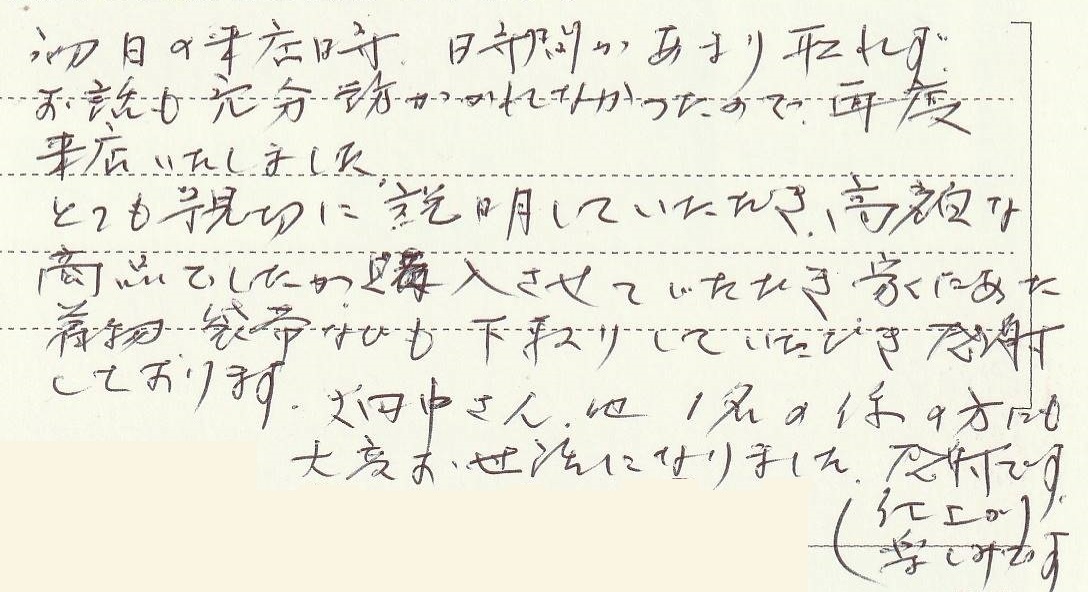 初日の来店時、時間があまり取れず
お話も充分訪かれなかったので、再度
来店いたしました。
とても親切に説明していただき、高額な
商品でしたが購入させていただき家にあった
着物 袋帯なども下取りしていただき感謝
しております。
田中さん、他1名の係の方にも
大変お世話になりました。感謝です。
(仕上が
楽しみです)